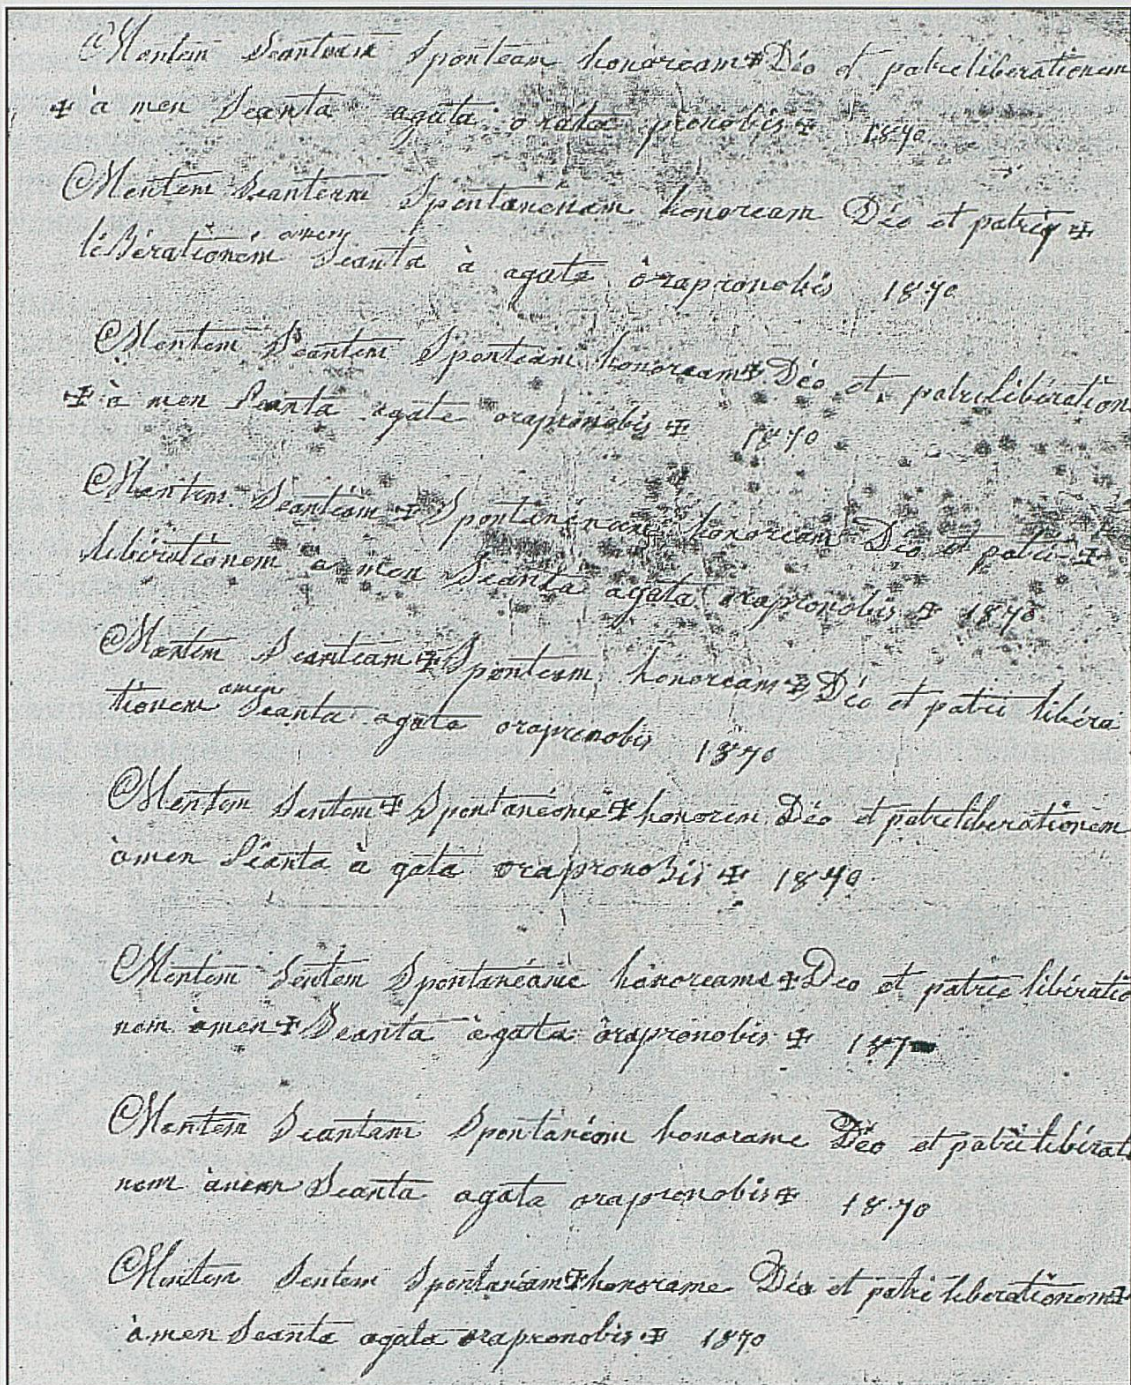 Mentem Seanteam Sponteam honoream ✠ Déo et patrie liberationem
✠ à men Seanta agata orata pronobis ✠ 1870
Mentem Seanteam Spontanénam honoream Déo et patrie ✠
libérationém amen Seanta à agata òrapronobis 1870
Mentem Seantem Sponteam honoream ✠ Déo et patrie libération
✠ à men Seanta agate orapronobis ✠ 1870
Mentem Seanteam ✠ Spontanénam honoream Déo et patrie ✠
libérationem à men Seanta agata orapronobis ✠ 1870
Mentem Seanteam ✠ Sponteam honoream ✠ Déo et patrie libéra
tionem amen Seanta agata orapronobis 1870
Mentem Sentem ✠ Spontanéome ✠ honorem Déo et patrie liberationem
àmen Séanta à gata orapronobis ✠ 1870
Mentem Sentem Spontanéame honoreame ✠ Deo et patrie libératio
nem àmen ✠ Seanta àgata òrapronobis ✠ 187
Mentem Seantam Spontanéom honorame Déo et patrie libérat
nem àmen Seanta agata orapronobis ✠ 1870
Mentem Sentem Spontanéam ✠ honorame Déo et patrie liberationem ✠
àmen Seanta agata orapronobis ✠ 1870